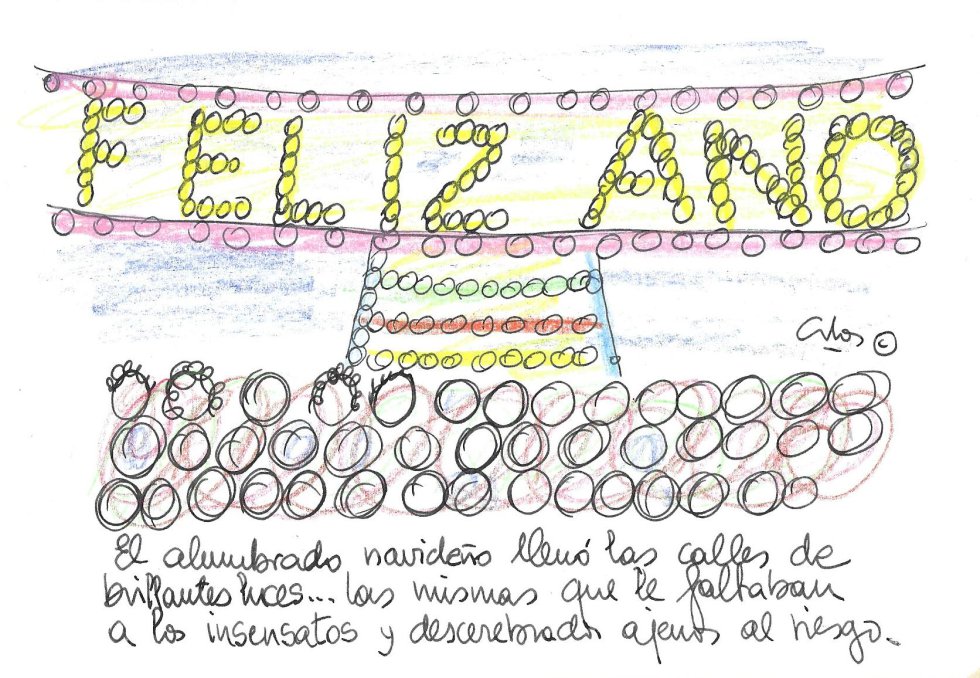 FELIZ ANO
©
El alumbrado navideño llenó las calles de
brillantes luces... las mismas que le faltaban
a los insensatos y descerebrados ajenos al riesgo.